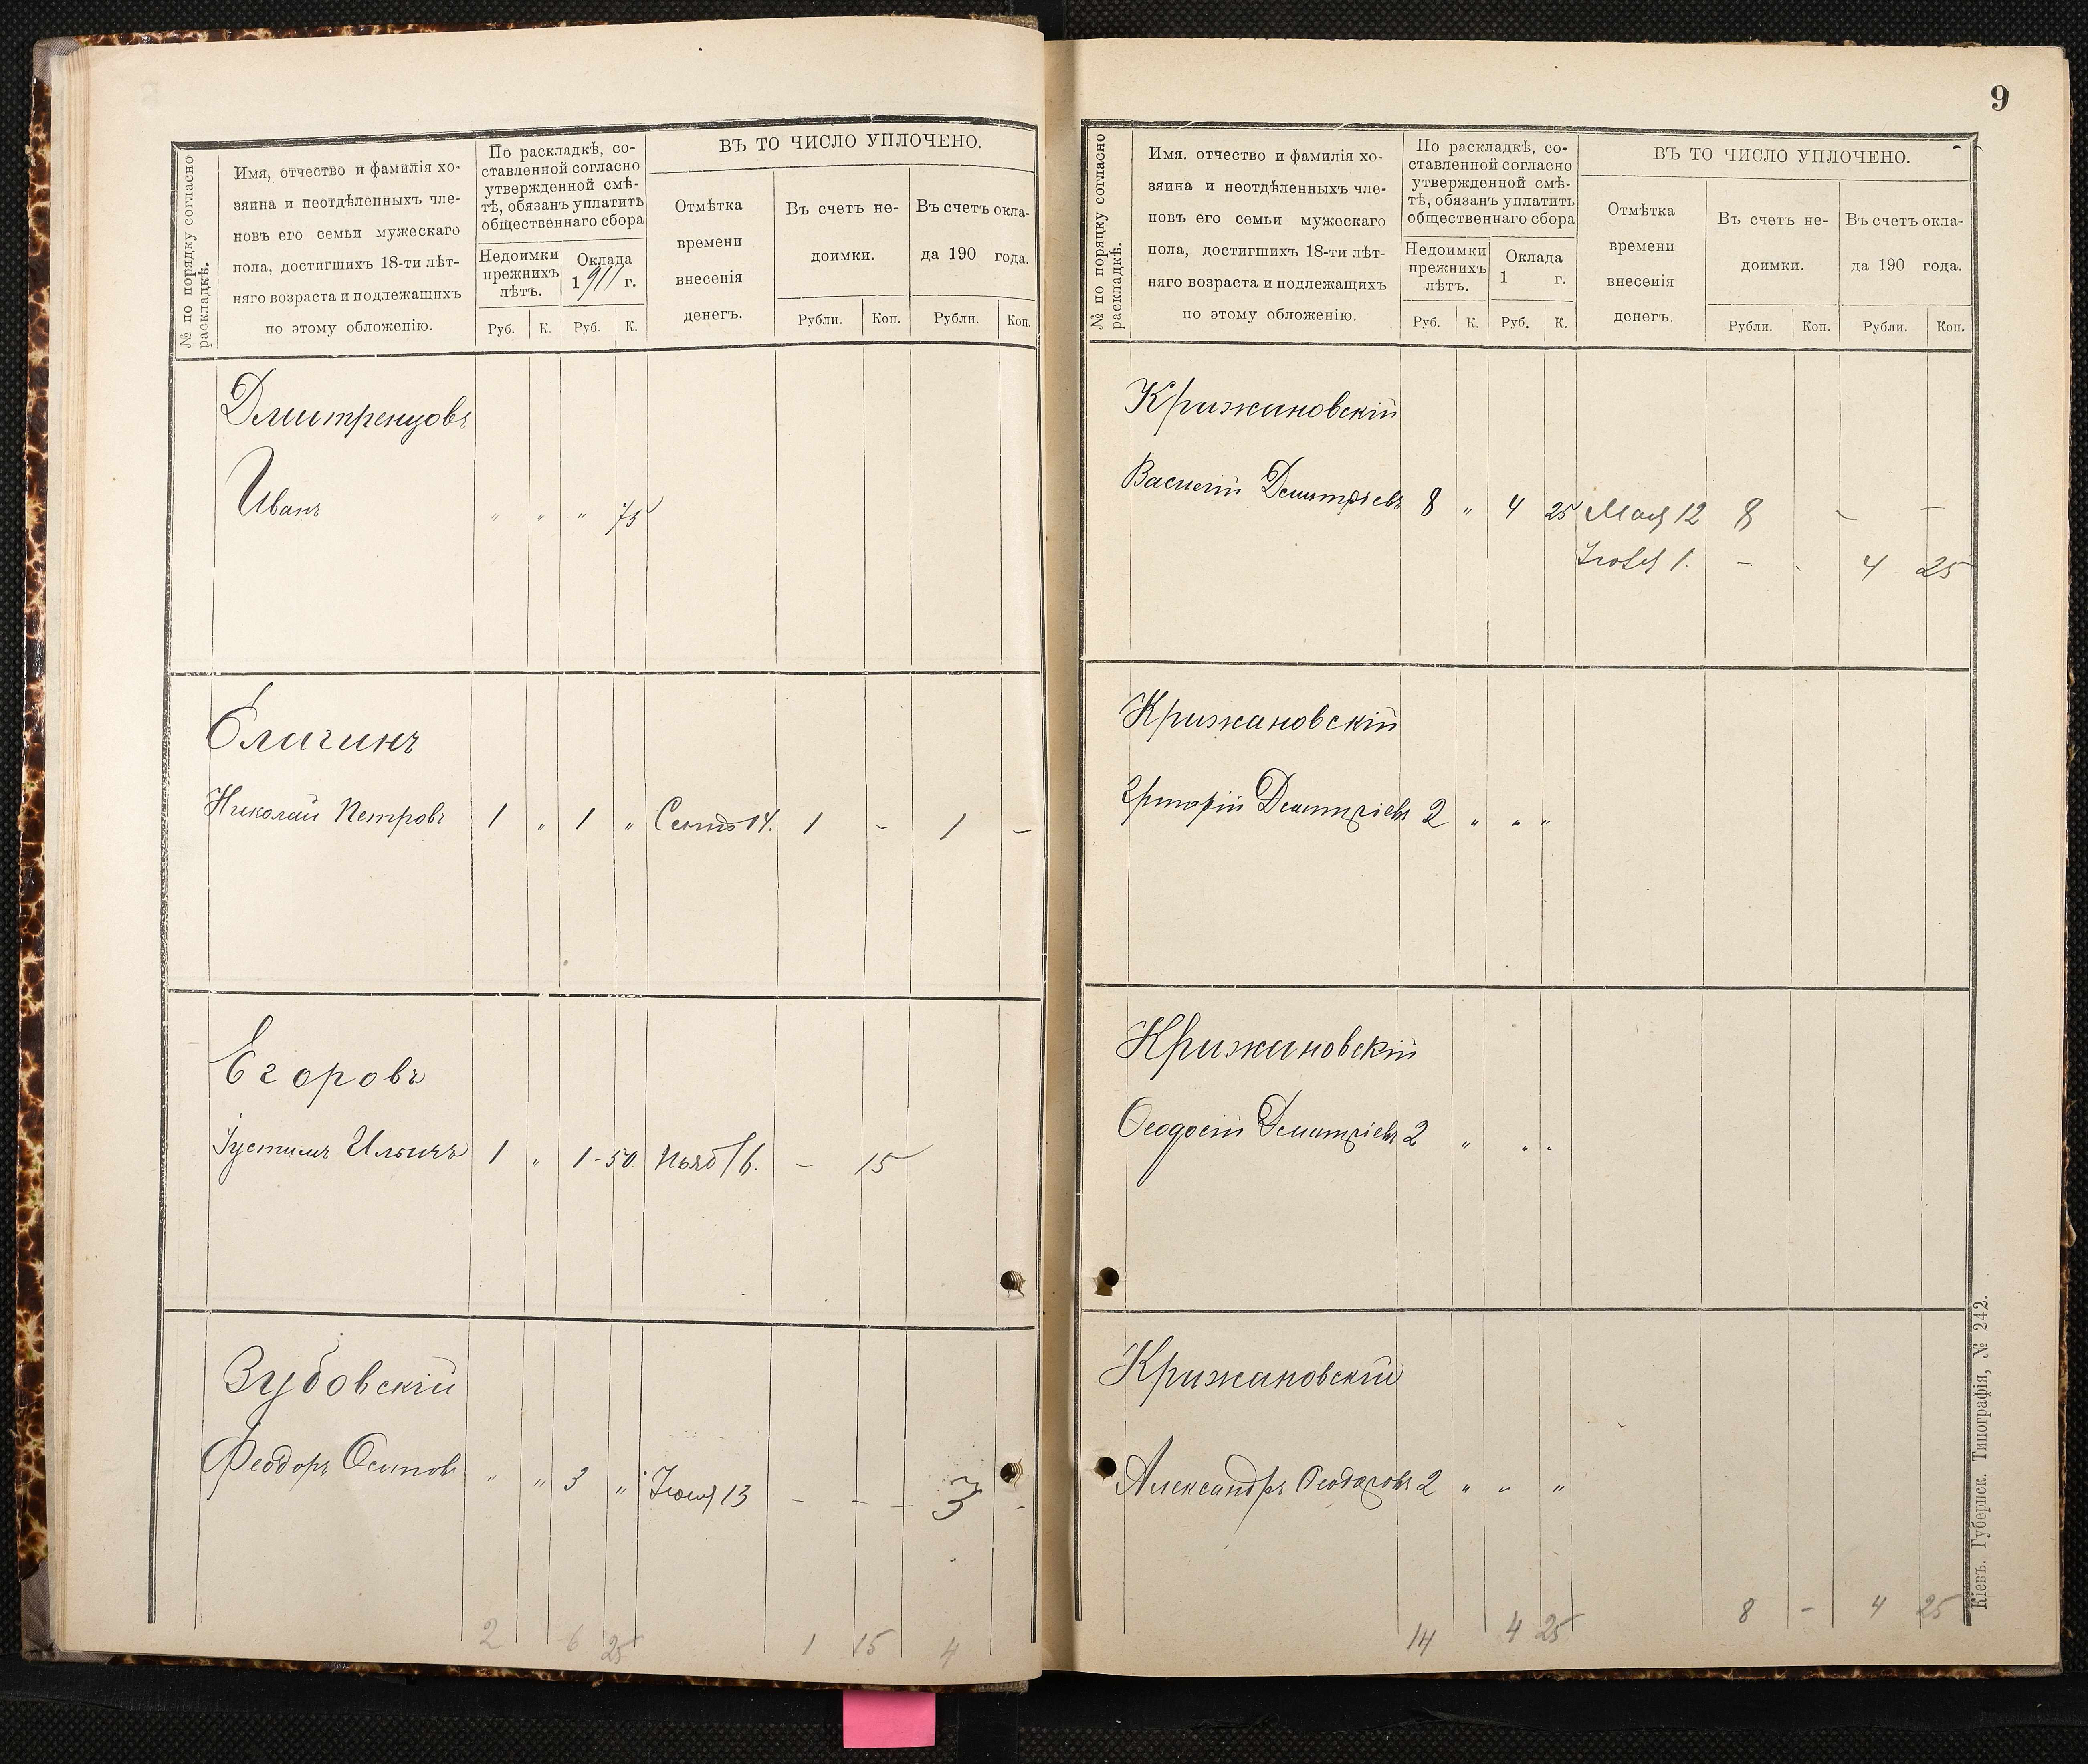 № по порядку согласно раскладкѣ.
Имя, отчество и фамилія хо-
зяина и неотдѣленныхъ чле-
новъ его семьи мужескаго
пола, достигшихъ 18-ти лѣт-
няго возраста и подлежащихъ
по этому обложенію.
По раскладкѣ, со-
ставленной согласно
утвержденной смѣ-
тѣ, обязанъ уплатить
общественнаго сбора
Недоимки
прежнихъ
лѣтъ.
Оклада
1911 г.
Руб. К. Руб. К.
ВЪ ТО ЧИСЛО УПЛОЧЕНО.
Отмѣтка
времени
внесенія
денегъ.
Въ счетъ не-
доимки.
Въ счетъ окла-
да 190 года.
Рубли. Коп. Рубли. Коп.
Дмитренцовъ
Иванъ " " " 75
Елагинъ
Николай Петровъ 1 " 1 " Сент 14. 1 - 1 -
Егоровъ
Іустинъ Ильичъ 1 " 1-50. Нояб 16. - 15
Зубовскій
Феодоръ Осиповъ " " 3 " Іюня 13 - - - 3 -
2 6 25 1 15 4
9
№ по порядку согласно раскладкѣ.
Имя, отчество и фамилія хо-
зяина и неотдѣленныхъ чле-
новъ его семьи мужескаго
пола, достигшихъ 18-ти лѣт-
няго возраста и подлежащихъ
по этому обложенію.
По раскладкѣ, со-
ставленной согласно
утвержденной смѣ-
тѣ, обязанъ уплатить
общественнаго сбора
Недоимки
прежнихъ
лѣтъ.
Оклада
1 г.
Руб. К. Руб. К.
ВЪ ТО ЧИСЛО УПЛОЧЕНО.
Отмѣтка
времени
внесенія
денегъ.
Въ счетъ не-
доимки.
Въ счетъ окла-
да 190 года.
Рубли. Коп. Рубли. Коп.
Крижановскій
Василій Дмитріевъ 8 " 4 25 Мая 12 8 - -
Іюля 1. - - 4 25
Крижановскій
Дмитріевъ 2 " " "
Крижановскій
Феодосій Дмитріевъ 2 " " "
Крижановскій
Александръ Феодоровъ 2 " " "
14 4 25 8 - 4 25
Кіевъ. Губернск. Типографія, № 242.